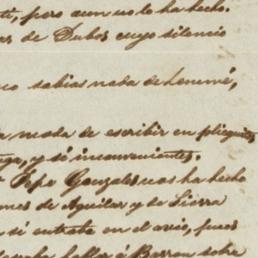 pero aun no lo ha hecho.
de Dubos cuyo silencio
no sabias nada de
moda de escribir en pliegues,
y sí inconvenientes.
Pepe Gonzales nos ha hecho
de Aguilar y de Sierra
sí entraba en el avio, pues
á Barron sobre